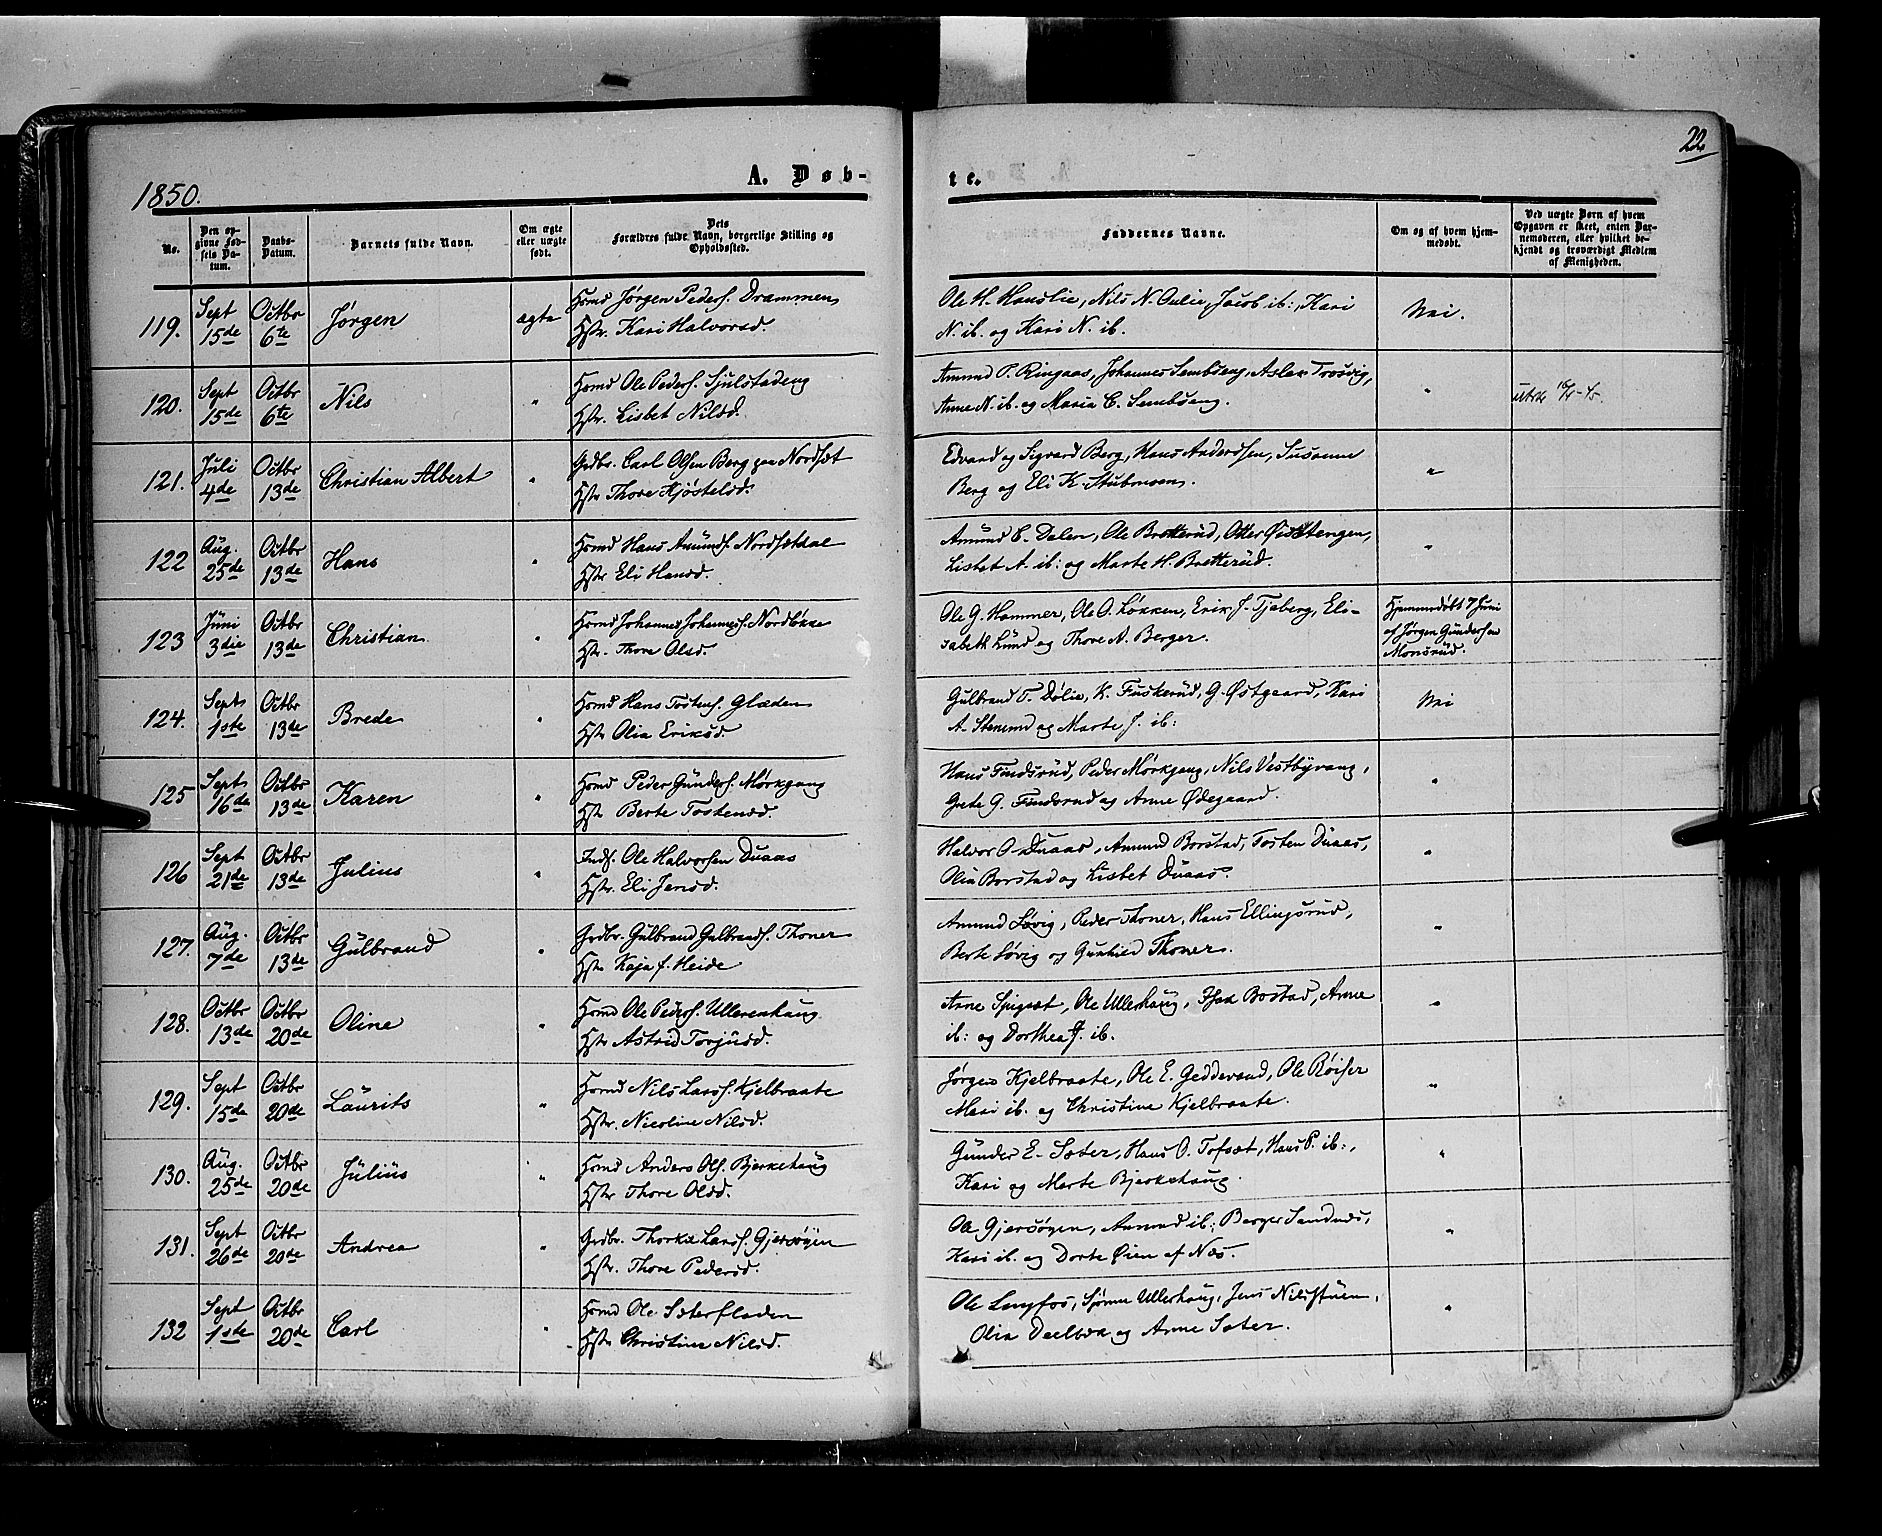 22
1850.
A. Døb-
te.
No.
Den op-
givne Fød-
sels Da-
tum.
Daabs-
Datum.
Barnets fulde Navn.
Om ægte
eller uægte
født.
Dets
Forældres fulde Navn, borgerlige Stilling og
Opholdssted.
Faddernes Navne.
Om og af hvem hjem-
medøbt.
Ved uægte Børn af hvem
Opgaven er skeet, enten Bar-
nemoderen, eller hvilket be-
kjendt og troværdigt Medlem
af Menigheden.
119. Sept 15de Octbr 6te Jørgen ægte
Hsmd Jørgen Peders. Drammen
Hstr. Kari Halvorsd.
Ole H. Hanslie, Nils N. Oulie, Jacob ib:, Kari
N. ib. og Kari N. ib.
Nei.
120. Sept 15de Octbr 6te Nils "
Hsmd Ole Peders. Sjulstadeng
Hstr. Lisbet Nilsd.
Amund P. Ringaas, Johannes Sembseng, Aslak Trosvig,
Anne N. ib. og Maria C. Sembseng.
"
121. Juli 4de Octbr 13de Christian Albert "
Grdbr. Carl Olsen Berg paa Nordset
Hstr Thore Kjøstelsd.
Edvard og Sigvard Berg, Hans Anderssen, Susanne
Berg og Eli K. Stubmoen.
"
122 Aug. 25de Octbr 13de Hans "
Hsmd Hans Amunds. Nordsetdal
Hstr Eli Hansd.
Amund E. Dalen, Ole Bratterud, Otter Østengen,
Lisbet A. ib: og Marte H. Bratterud.
"
123 Juni 3die Octbr 13de Christian "
Hsmd Johannes Johannes. Nordløkke
Hstr. Thore Olsd.
Ole G. Hammer, Ole O. Løkken, Erik J. Tjaberg, Eli-
sabeth Lund og Thore N. Berger.
Hjemmedøbt 7 Juni
af Jørgen Gundersen
Monsrud.
124. Sept 1ste Octbr 13de Brede "
Hsmd Hans Tostens. Gladen
Hstr Olia Eriksd.
Gulbrand T. Dølie, K. Fuskerud, G. Østgaard, Kari
A. Stenmd og Marte J. ib:
Nei
125 Sept 16de Octbr 13de Karen "
Hsmd Peder Gunders. Mørkgang
Hstr Berte Tostensd.
Hans Findsrud, Peder Mørkgang, Nils Vestbyvang,
Grete G. Findsrud og Anne Ødegaard.
"
126 Sept 21de Octbr 13de Julius "
Inds. Ole Halvorsen Duaas
Hstr. Eli Jensd.
Halvor O. Duaas, Amund Borstad, Tosten Duaas,
Olia Borstad og Lisbet Duaas.
"
127. Aug. 7de Octbr 13de Gulbrand "
Grdbr. Gulbrand Gulbrands. Thoner
Hstr Kaja f. Heide
Amund Løvig, Peder Thoner, Hans Ellingsrud,
Berte Løvig og Gunhild Thoner.
"
128. Octbr 13de Octbr 20de Oline "
Hsmd Ole Peders. Ullerenhaug
Hstr Astrid Torjusd.
Arne Spigset, Ole Ullerhaug, Isak Bostad, Anne
ib: og Dorthea J. ib.
"
129. Sept 15de Octbr 20de Laurits "
Hsmd Nils Lars. Kjelbraate
Hstr. Nicoline Nilsd.
Jørgen Kjelbraate, Ole E. Geddevand, Ole Røiser
Mari ib. og Christine Kjelbraate.
"
130. Aug. 25de Octbr 20de Julius "
Hsmd Anders Ols. Bjerkehaug
Hstr Thore Olsd.
Gunder E. Sæter, Hans O. Tofset, Hans P. ib:,
Kari og Marte Bjerkehaug.
"
131. Sept 26de Octbr 20de Andrea "
Grdbr. Thorkil Lars. Gjersøyen
Hstr. Thore Pedersd.
Ole Gjersøyen, Amund ib: Berger Sandnes,
Kari ib. og Dorte Øien af Næs.
"
132 Sept 1ste Octbr 20de Carl "
Hsmd Ole Sæterfladen
Hstr Christine Nilsd.
Ole Lengfos, Søren Ullerhaug, Jens Nilsstuen,
Olia Dælbæk og Anne Sæter.
"